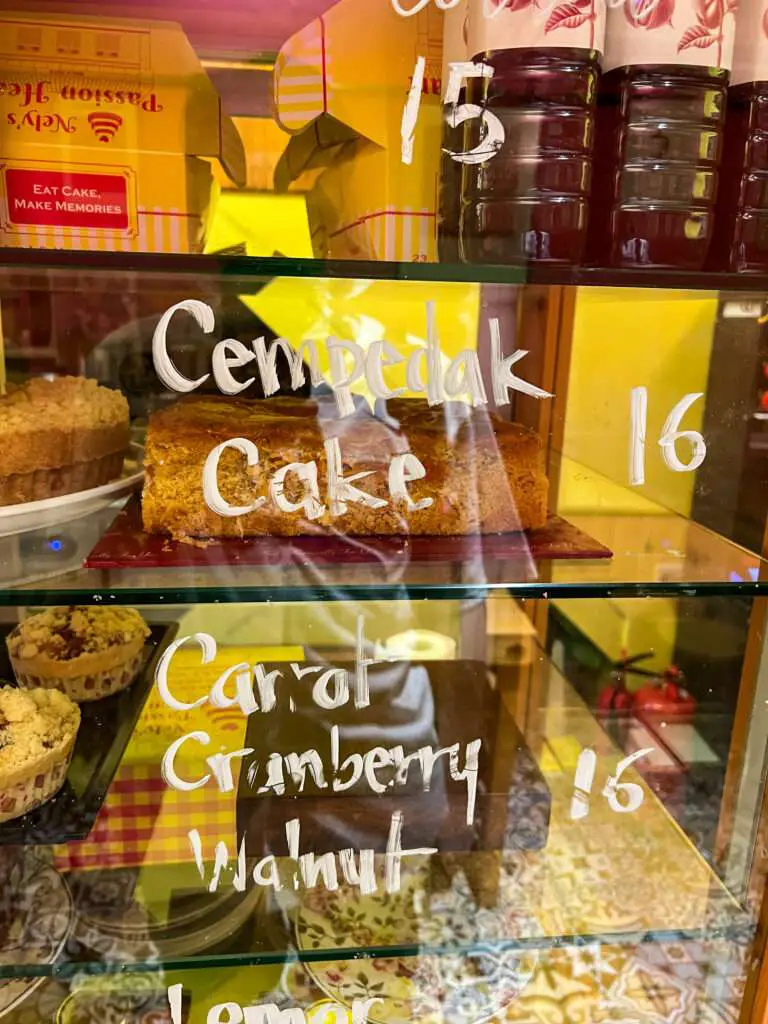 Nely's
Passion Hea
EAT CAKE,
MAKE MEMORIES
15
23
Cempedak
Cake
16
Carrot
Cranberry
Walnut
16
Lemon